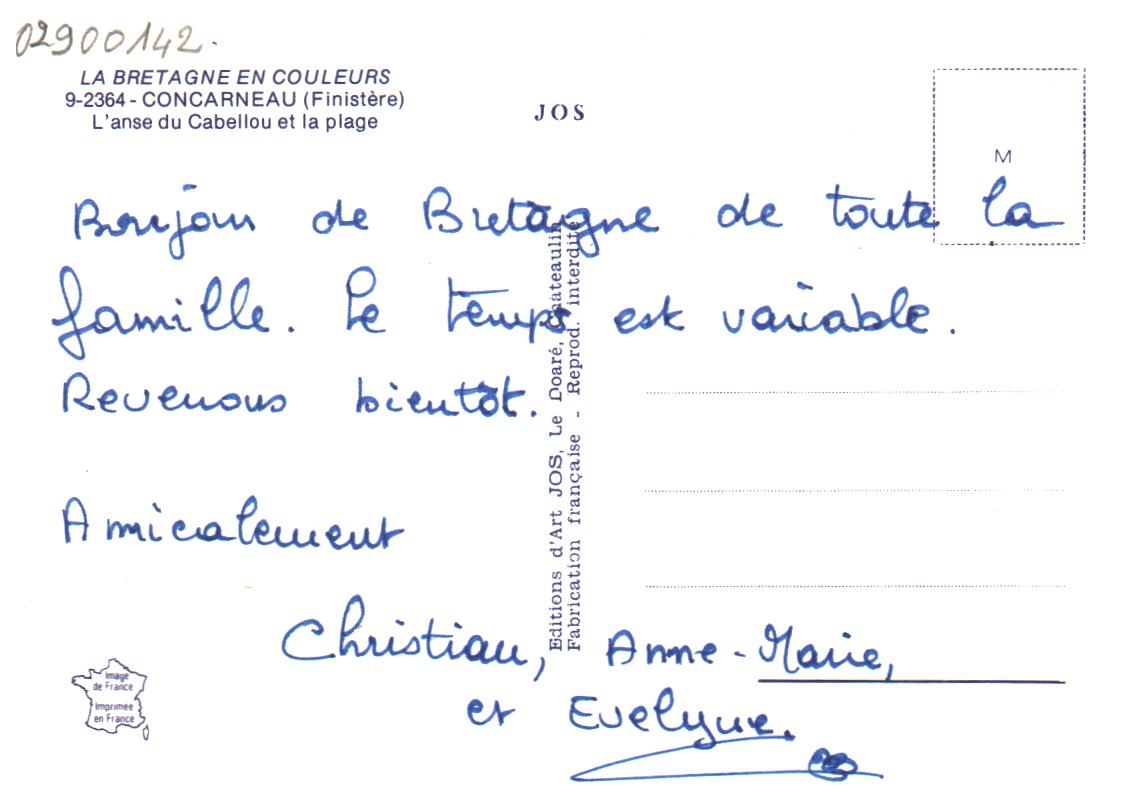 02900142.
LA BRETAGNE EN COULEURS
9-2364 - CONCARNEAU (Finistère)
L'anse du Cabellou et la plage
JOS
M
Bonjour de Bretagne de toute la
famille. Le temps est variable.
Revenons bientôt.
Amicalement
Christian, Anne-Marie,
et Evelyne.
Editions d'Art JOS, Le Doaré, Chateaulin
Fabrication française - Reprod. interdite
Image
de France
Imprimée
en France